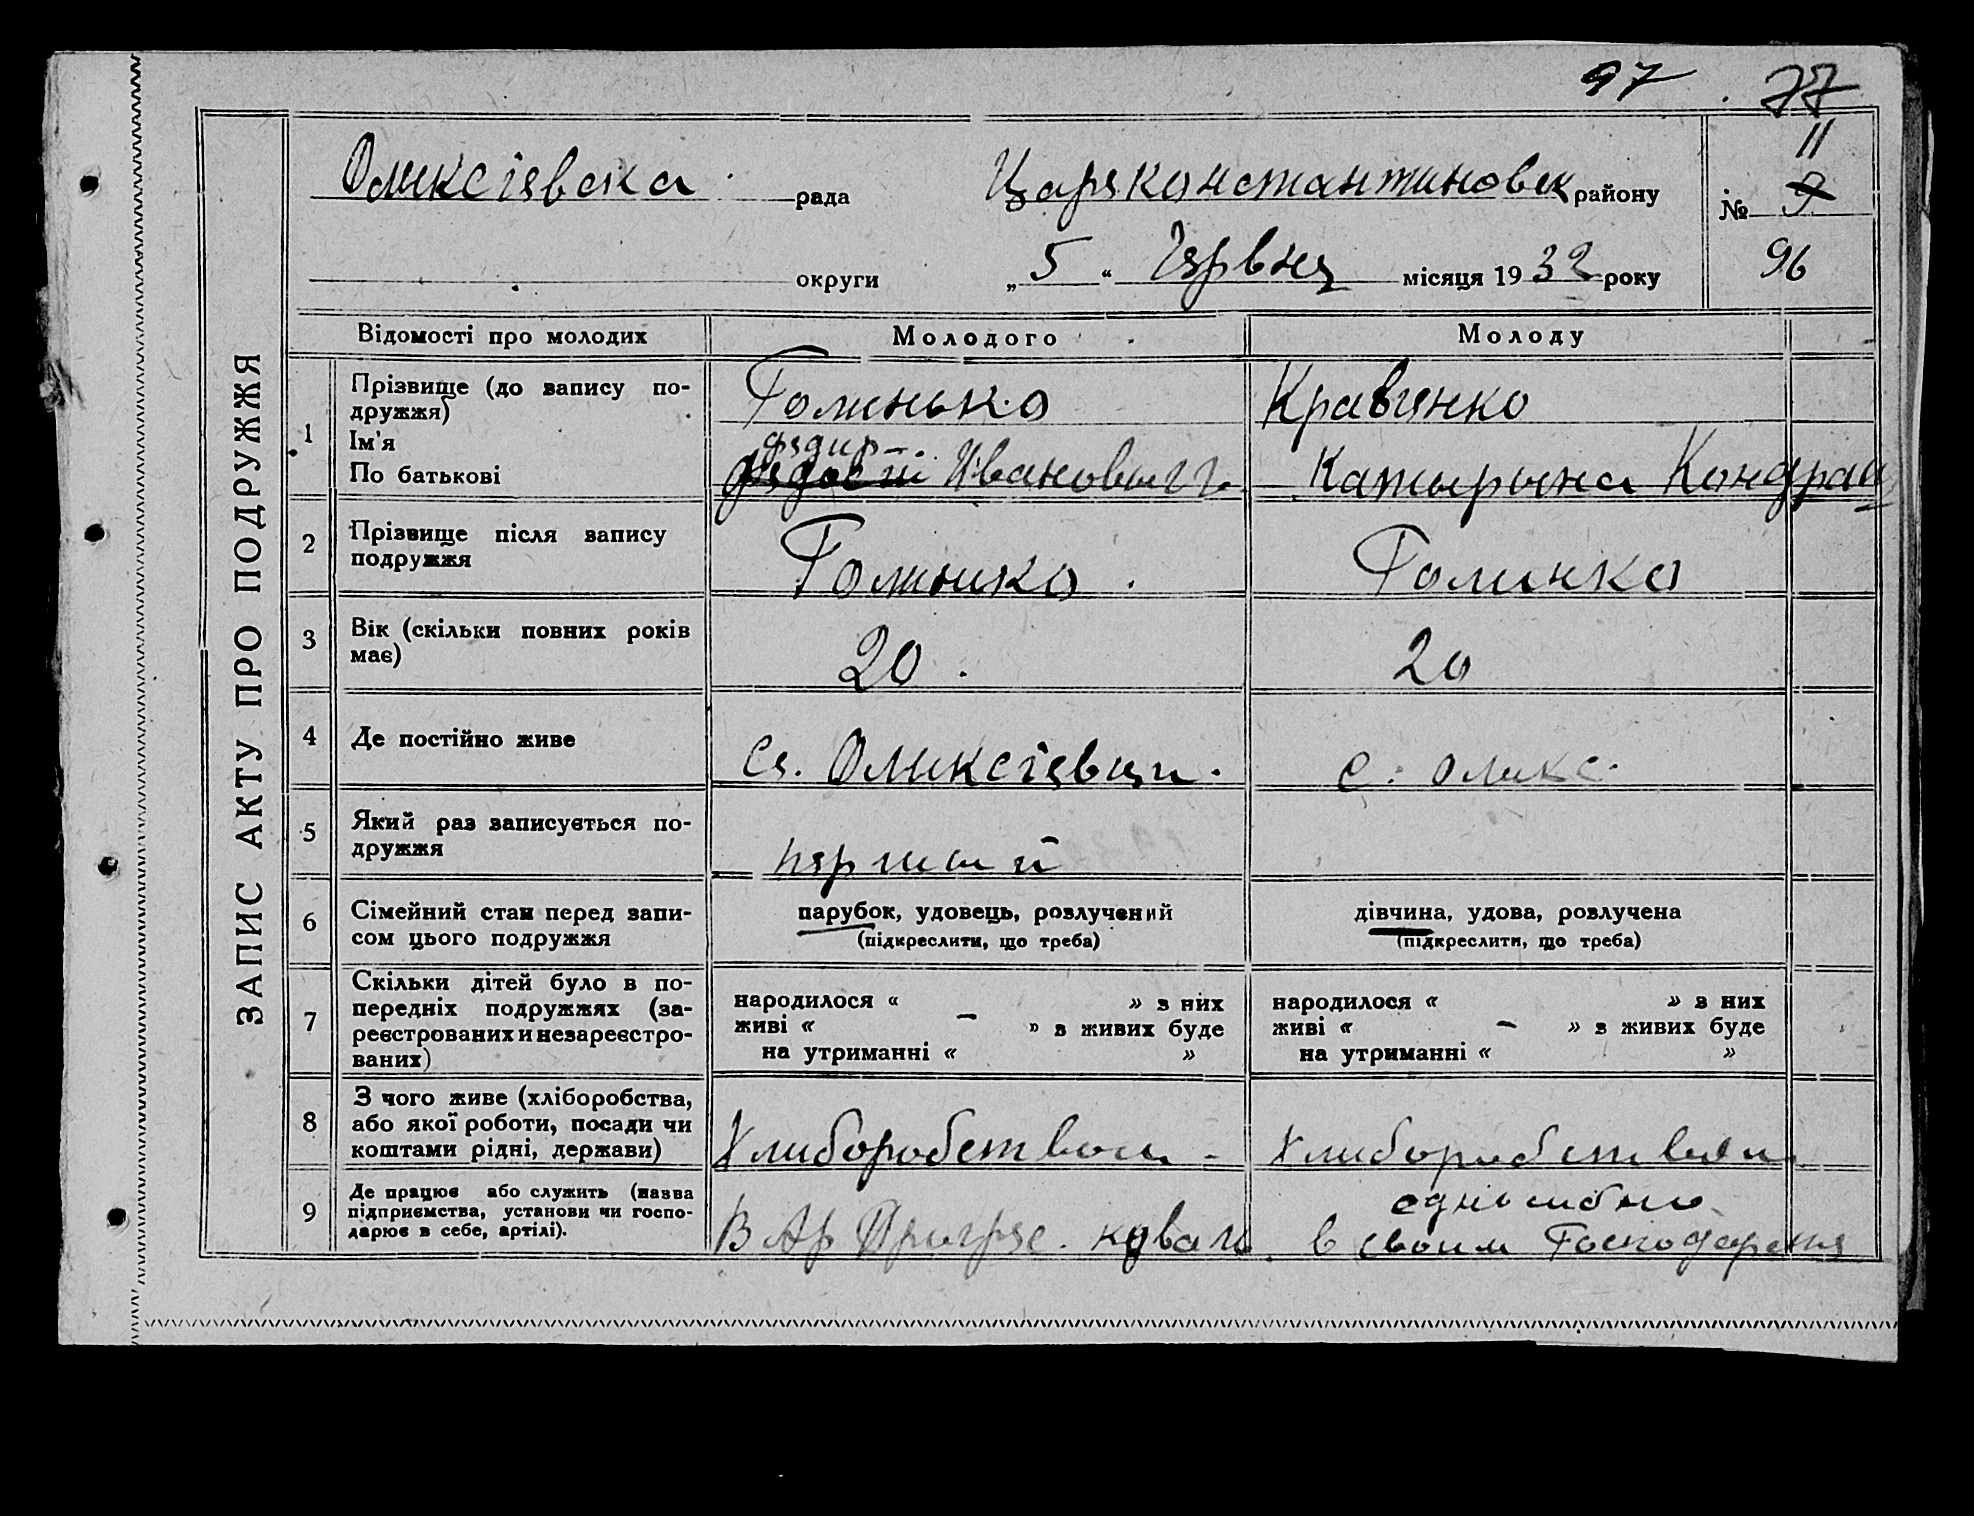 97 77
ЗАПИС АКТУ ПРО ПОДРУЖЖЯ
Оликсієвска рада Царяконстантиновск району
№ 11 9
округи „5“ Чярвня місяця 1932 року
96
Відомості про молодих Молодого Молоду
1 Прізвище (до запису по-
дружжя)
Ім'я
По батькові
Голинько Кравчнко
Фядир
Ивановичч Катырына Кондрат
2 Прізвище після запису
подружжя
Голинко Голинко
3 Вік (скільки повних років
має)
20. 20
4 Де постійно живе
Ся. Оликсієвци. с. Оликс.
5 Який раз записується по-
дружжя
пярший
6 Сімейний стан перед запи-
сом цього подружжя
парубок, удовець, розлучений
(підкреслити, що треба)
дівчина, удова, розлучена
(підкреслити, що треба)
7 Скільки дітей було в по-
передніх подружжях (за-
реєстрованих и незареєстро-
ваних)
народилося « – » з них
живі « » з живих буде
на утриманні « »
народилося « – » з них
живі « » з живих буде
на утриманні « »
8 З чого живе (хліборобства,
або якої роботи, посади чи
коштами рідні, держави)
Хлиборобством - Хлиборобством
9 Де працює або служить (назва
підприємства, установи чи госпо-
дарює в себе, артілі).
В Ар Прогряс. коваль
в своим Господарстя